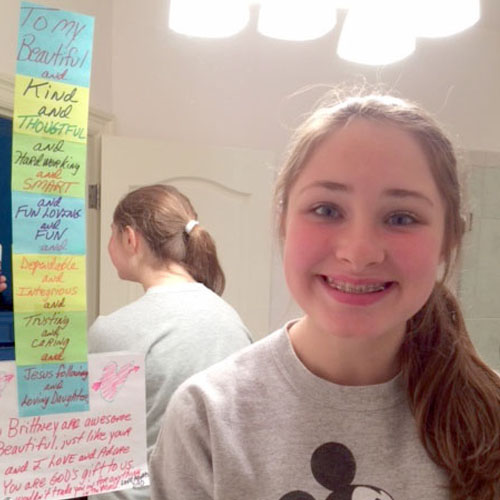 To my
Beautiful
and
Kind
and
THOUGTFUL
and
Hardworking
and
SMART
and
FUN LOVING
and
FUN
and
Dependable
and
Integrious
and
Trusting
and
CARING
and
Jesus following
and
Loving Daughter
Brittney are awesome
Beautiful, just like your
and I LOVE and Adore
You are GOD'S gift to us